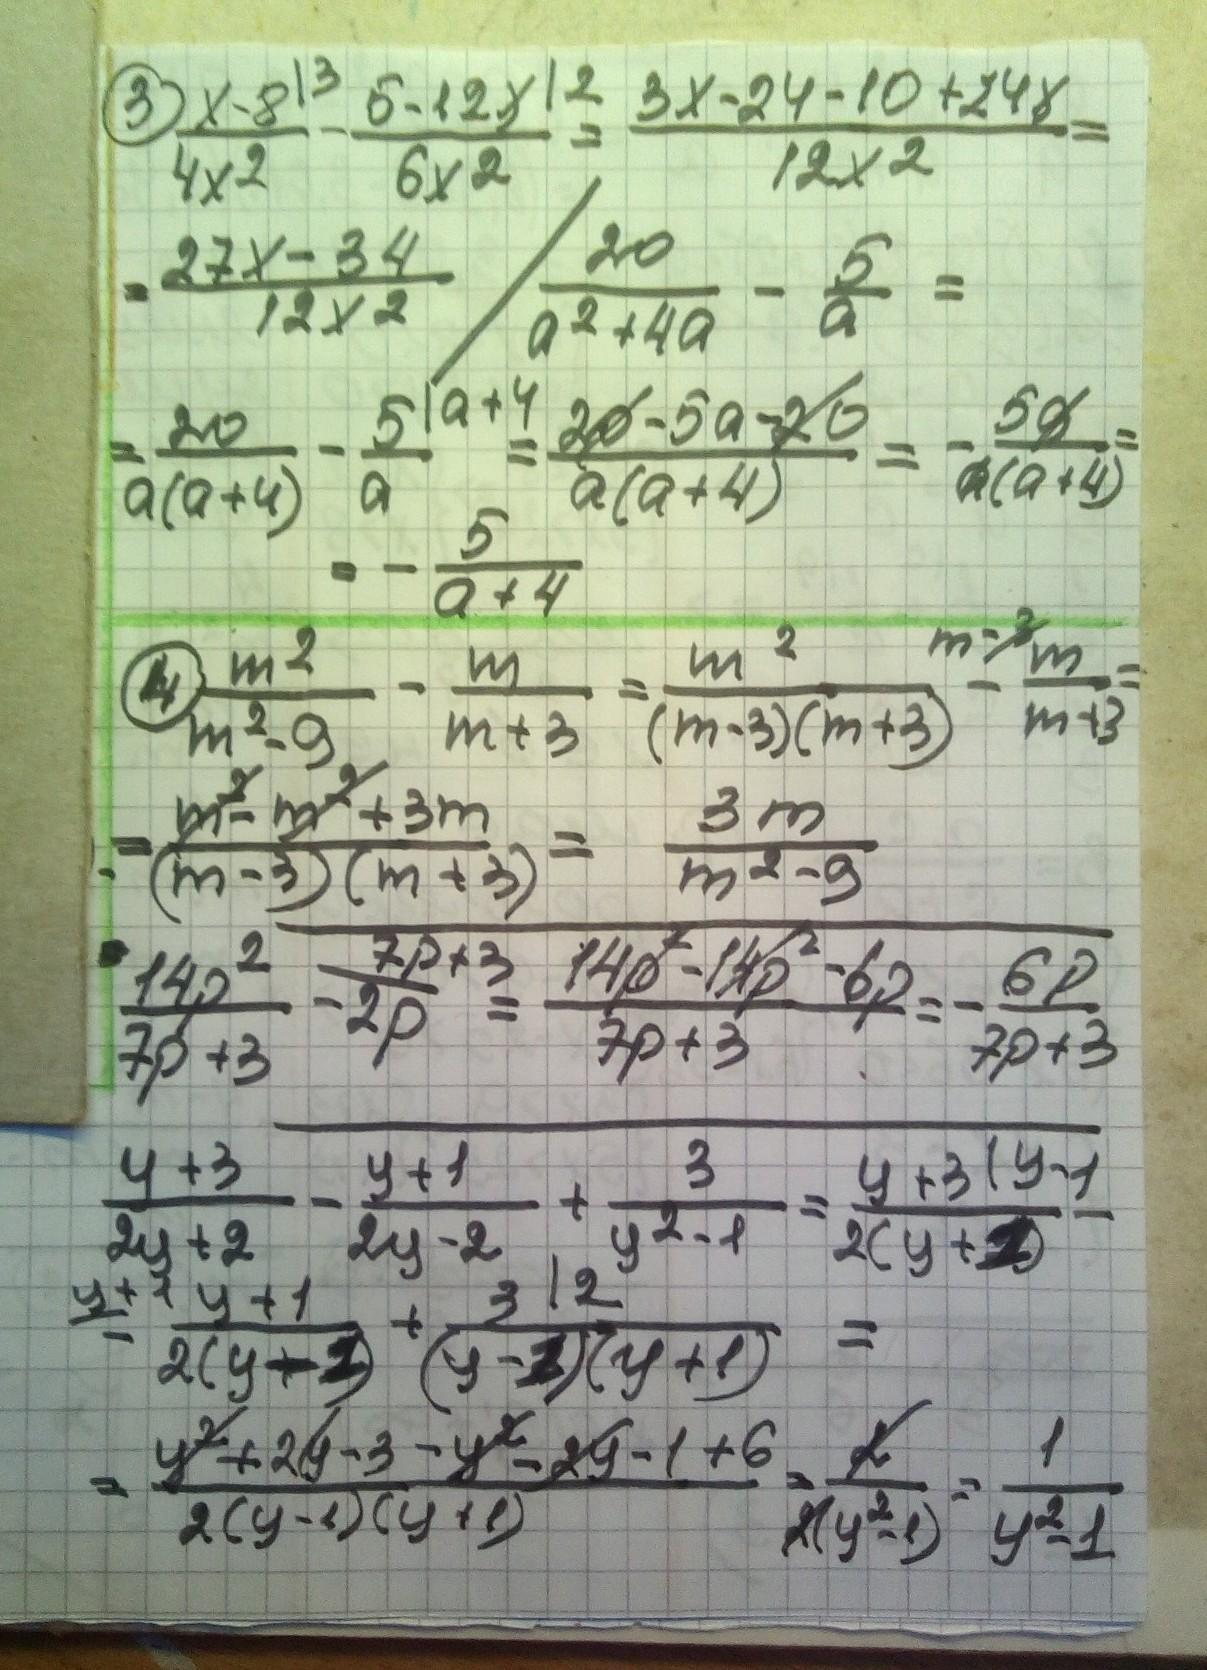 ③ (x-8|3)/(4x2) - (5-12x|2)/(6x2) = (3x-24-10+24x)/(12x2) =
= (27x-34)/(12x2) / 20/(a2+4a) - 5/a =
= 20/(a(a+4)) - 5|a+4/a = (20-5a-20)/(a(a+4)) = - 5a/(a(a+4)) =
= - 5/(a+4)
④ m2/(m2-9) - m/(m+3) = m2/((m-3)(m+3)) - m-3 m/(m+3) =
= (m2-m2+3m)/((m-3)(m+3)) = 3m/(m2-9)
14p2/(7p+3) - 7p+3/-2p = (14p2-14p2-6p)/(7p+3) = - 6p/(7p+3)
(y+3)/(2y+2) - (y+1)/(2y-2) + 3/(y2-1) = (y+3|y-1)/(2(y+1)) -
- y+1 (y+1)/(2(y-1)) + 3|2/((y-1)(y+1)) =
= (y2+2y-3-y2-2y-1+6)/(2(y-1)(y+1)) = 2/(2(y2-1)) = 1/(y2-1)